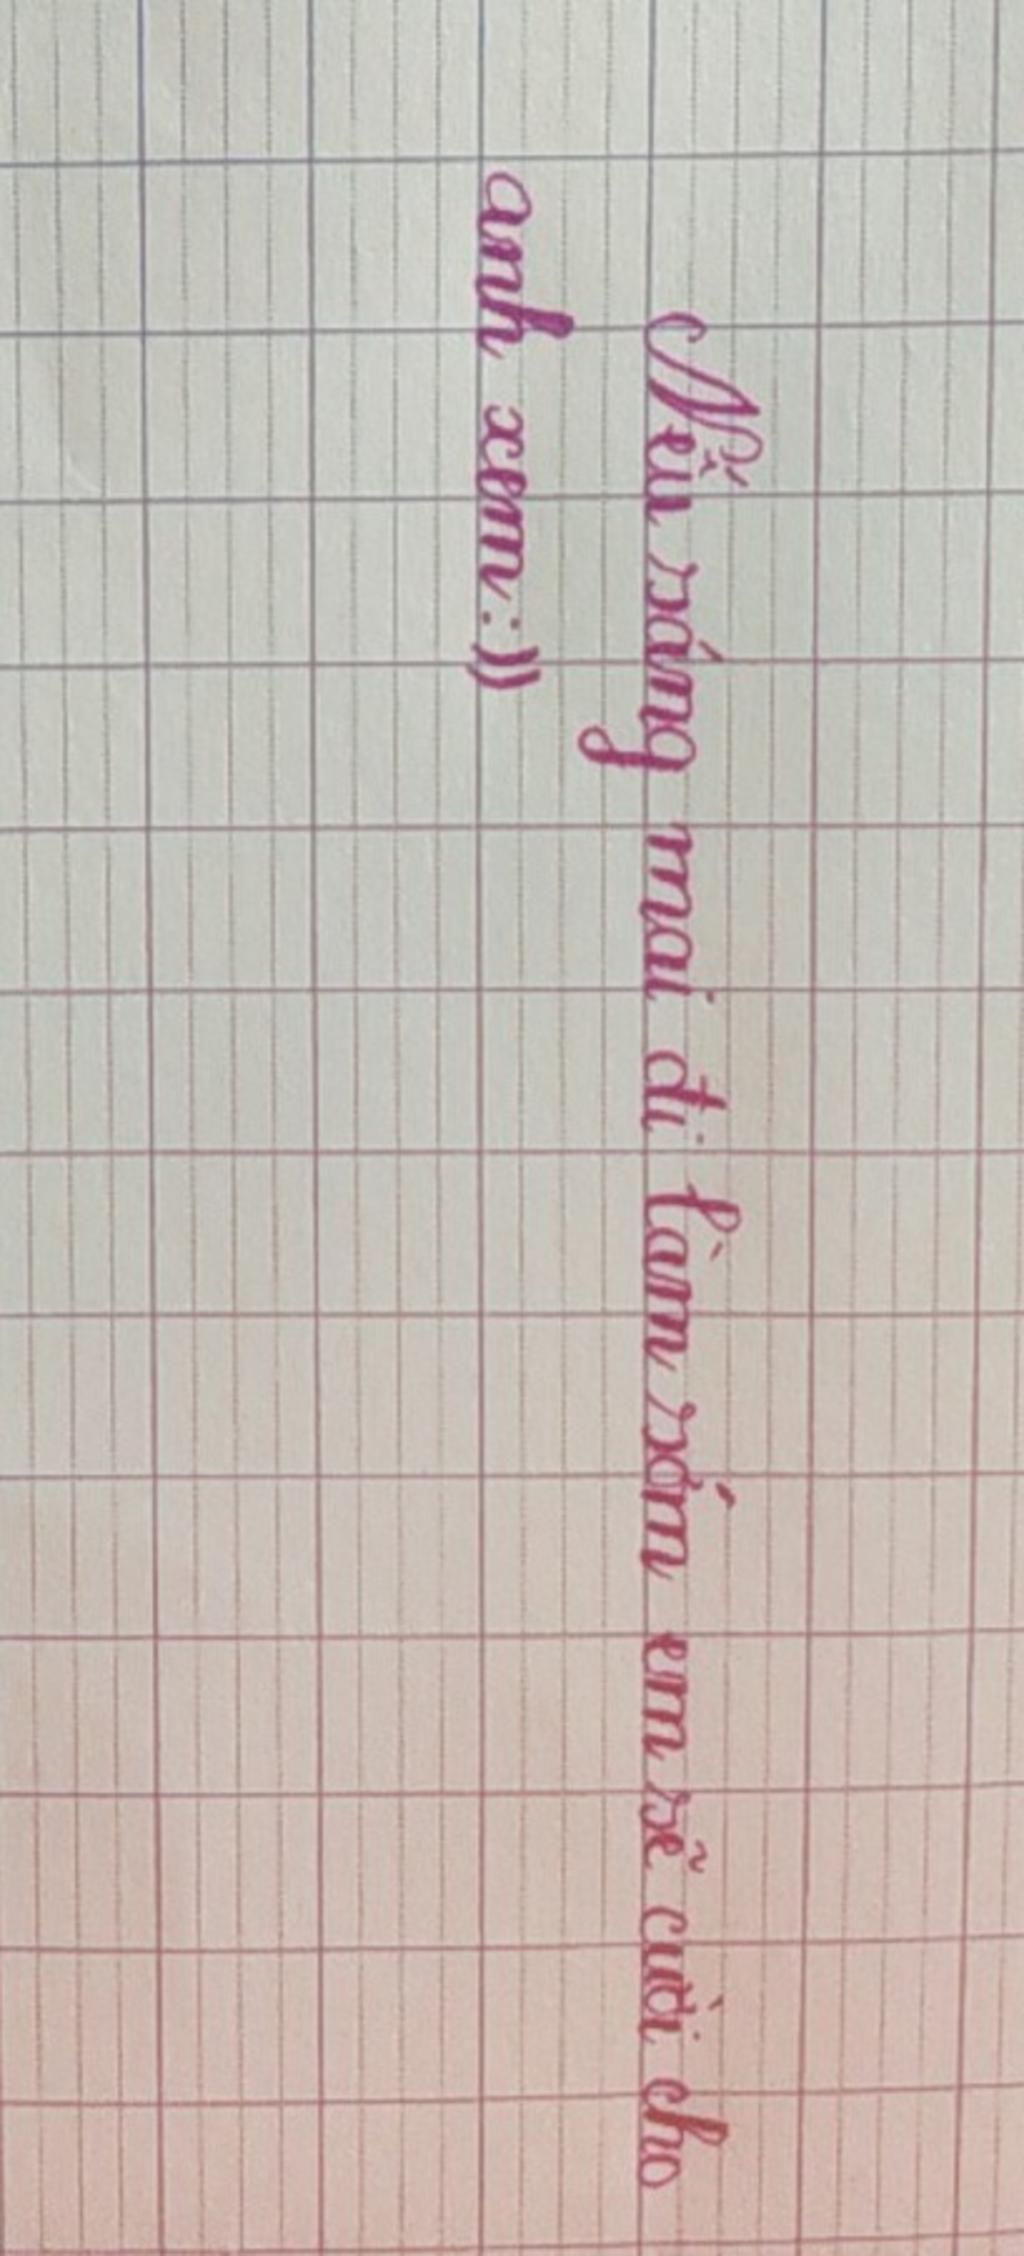 Nếu sáng mai đi làm sớm em sẽ cười cho
anh xem :))